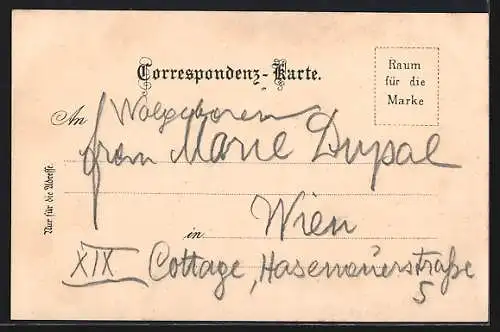 Correspondenz-Karte.
Raum
für die
Marke
An Wolgeboren
Marie
Nur für die Adresse.
Wien
in
XIX Cottage, Hasenauerstraße
5